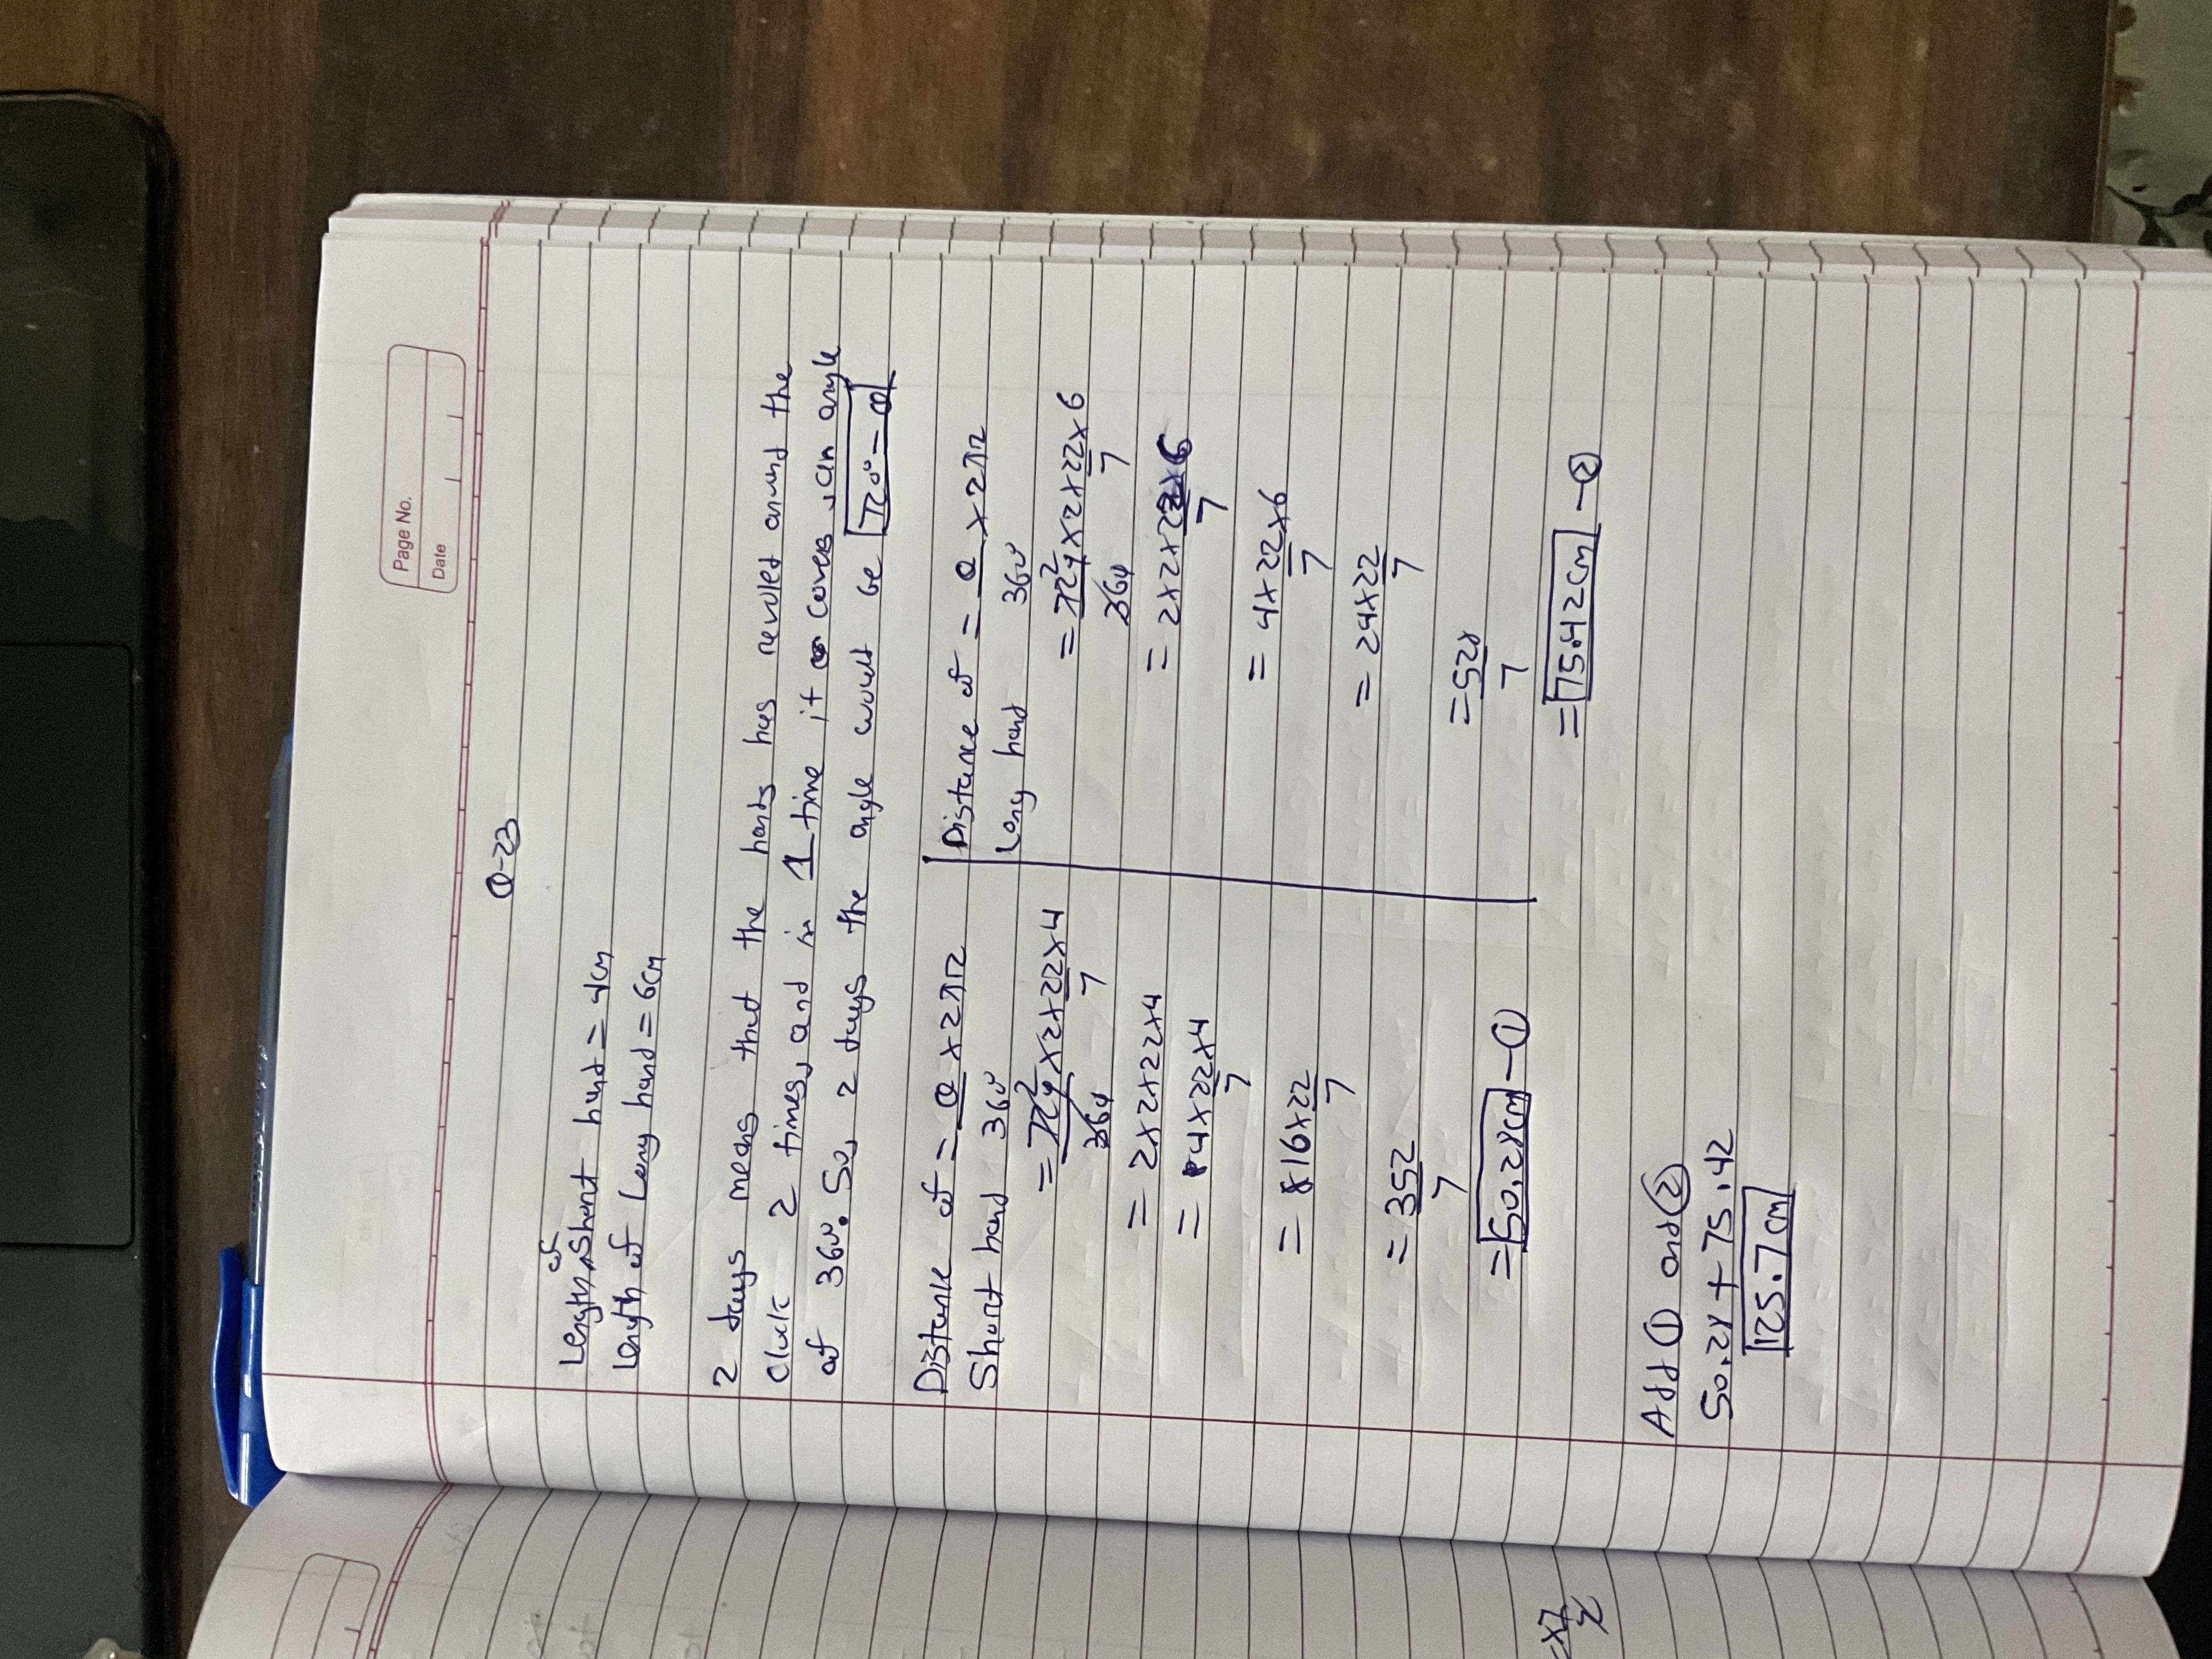 Page No.
Date
Q-23
Length of Short hand = 4cm
Length of Long hand = 6cm
2 days means that the hands has revolved around the
Clock 2 times, and in 1 time it covers, an angle
of 360°. So, 2 days the angle would be 720° = θ
Distance of = θ × 2πr
Short hand 360°
= 720² × 2 × 22 × 4
360 7
= 2×2×22×4
= 4×22×4
7
= 16×22
7
= 352
7
= 50.28cm - ①
Distance of = θ × 2πr
Long hand 360°
= 720² × 2 × 22 × 6
360 7
= 2×2×22×6
7
= 4×22×6
7
= 24×22
7
= 528
7
= 75.42cm - ②
Add ① and ②
50.28 + 75.42
125.7cm